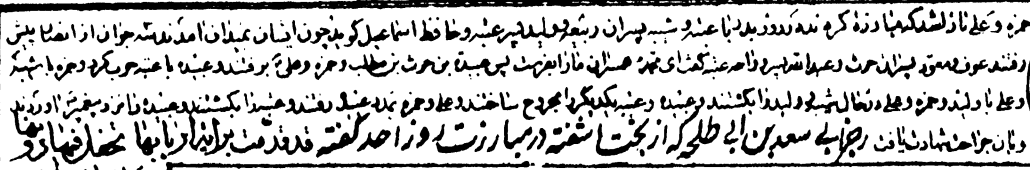 حمزه و علی نازل شد که مبارزه کردند در روز بدر با عتبه و شیبه پسران ربیعه و ولید پسر عتبه و حافظ اسماعیل گوید چون ایشان بمیدان آمدند سه جوان از انصار پیش
رفتند عوف و معوذ پسران حرث و عبدالله پسر رواحه عتبه گفت ای محمد همسران ما را بفرست پس عبیدة بن حرث بن مطلب و حمزه و علی برفتند و عبیده با عتبه حرب کرد و حمزه با شیبه
و علی با ولید و حمزه و علی در حال شیبه و ولید را بکشتند و عبیده و عتبه یکدیگر را مجروح ساختند و علی و حمزه بمدد عبیده رفتند و عتبه را بکشتند و عبیده را نزد پیغمبر آوردند
و بآن جراحت شهادت یافت رجز ابی سعد بن ابی طلحه که از بخت آشفته در مبارزت روز احد گفته قد قدمت برایة اربابها